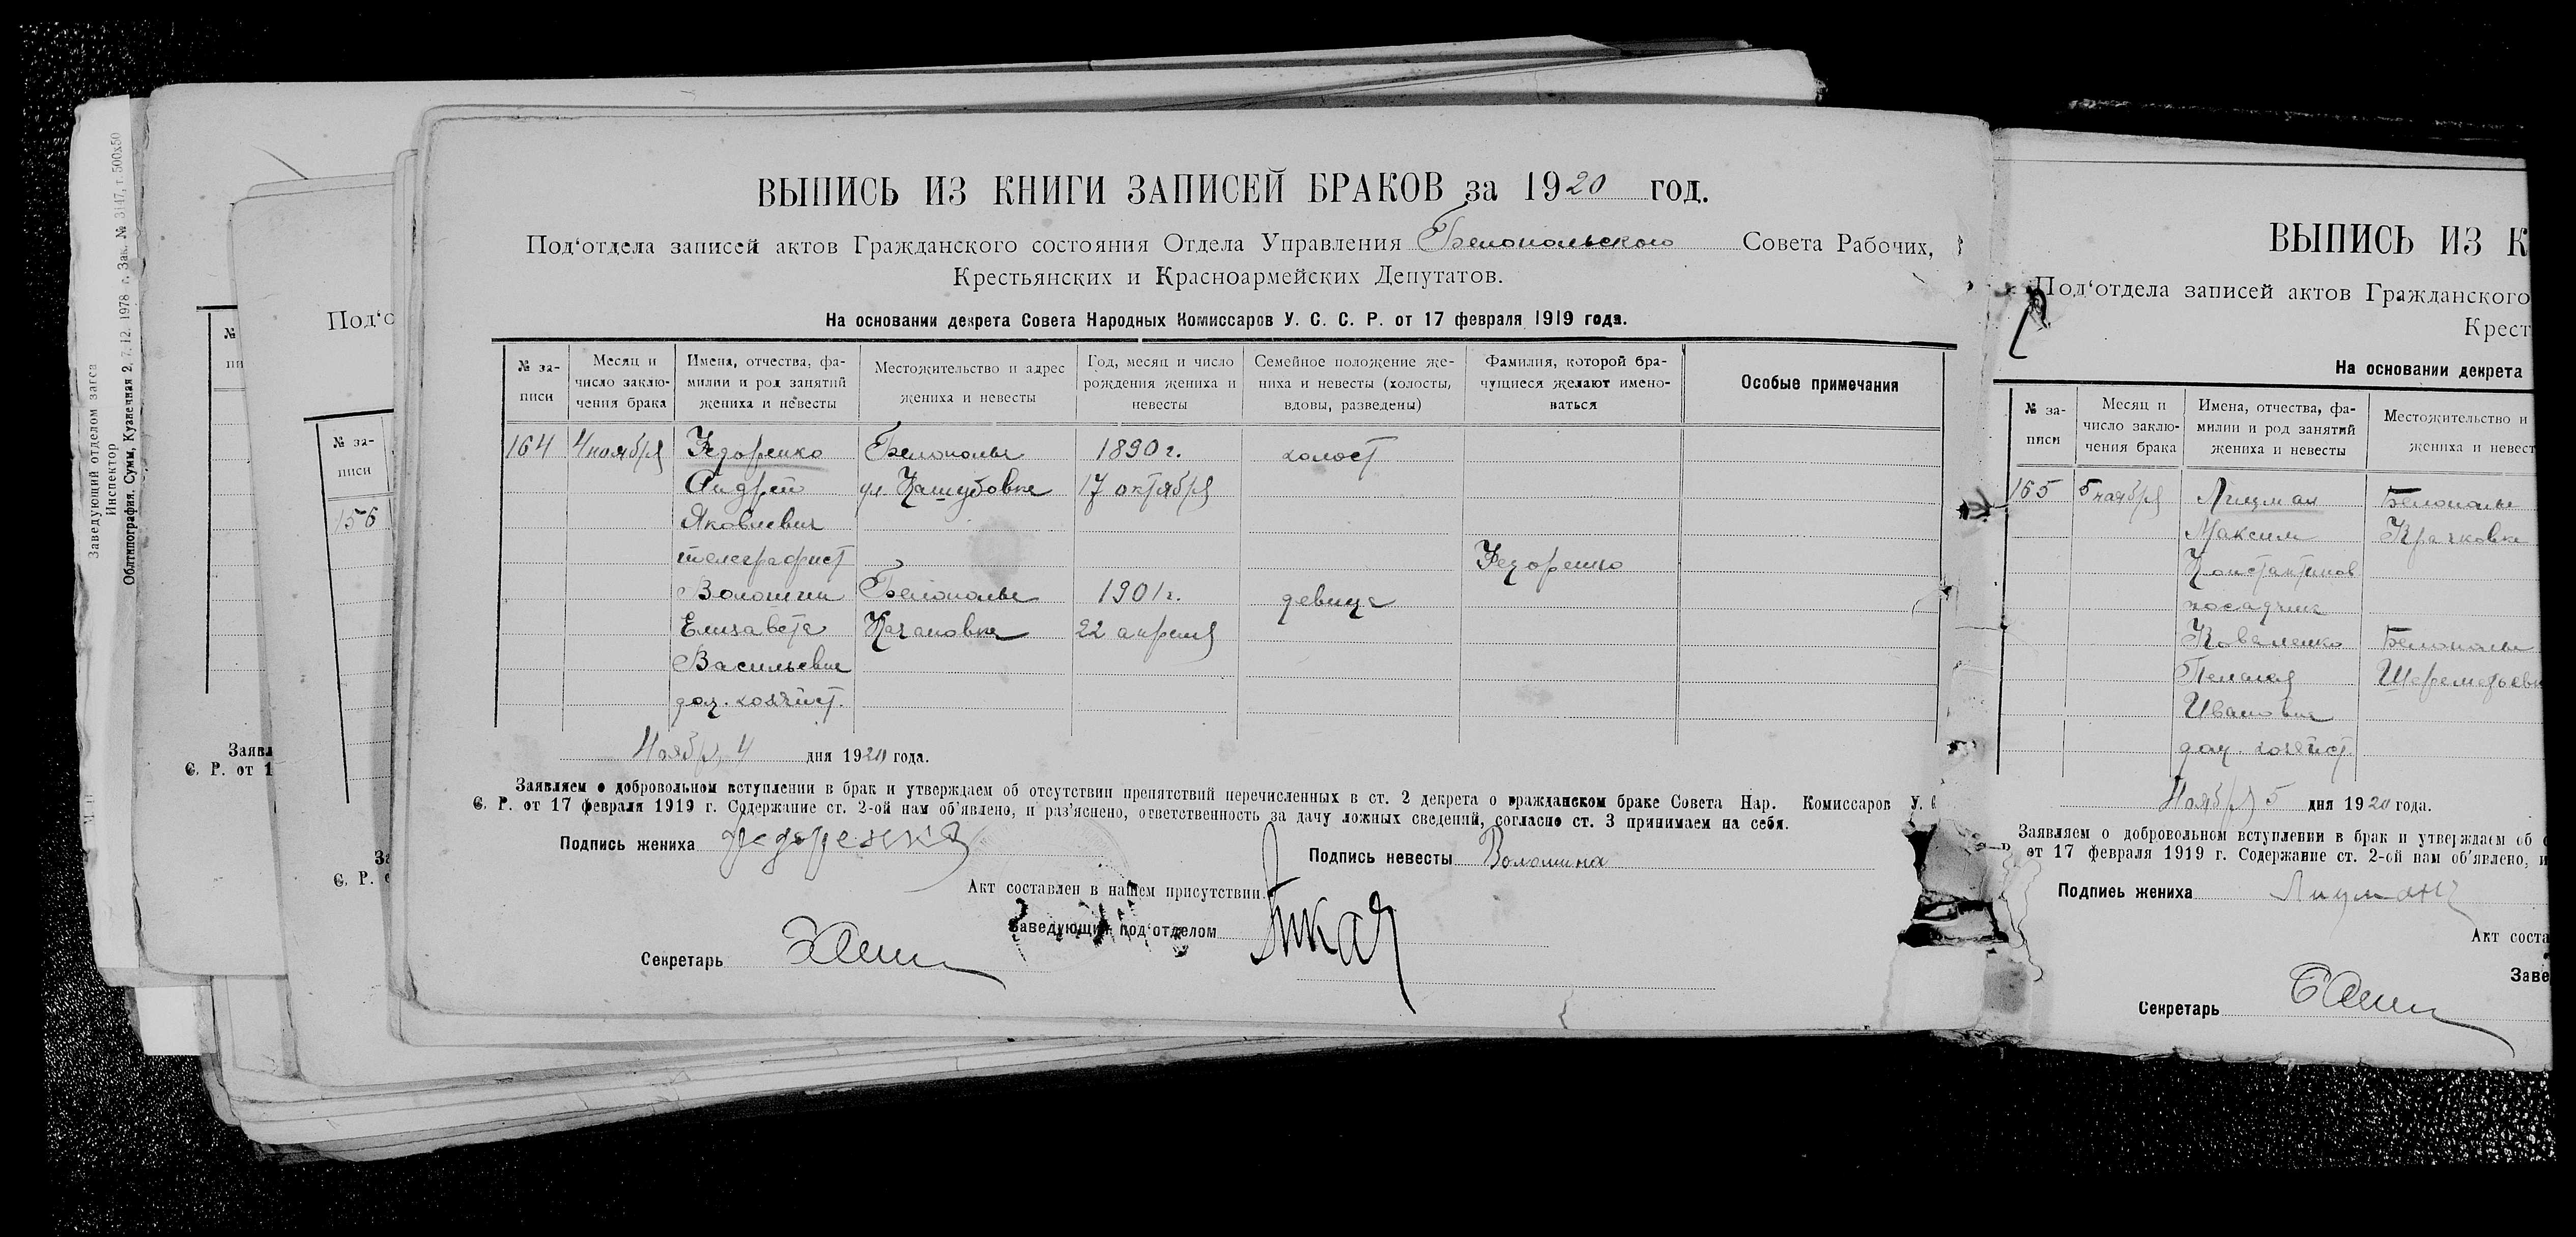 ВЫПИСЬ ИЗ КНИГИ ЗАПИСЕЙ БРАКОВ за 1920 год.
Под‘отдела записей актов Гражданского состояния Отдела Управления Белопольского Совета Рабочих,
Крестьянских и Красноармейских Депутатов.
На основании декрета Совета Народных Комиссаров У. С. С. Р. от 17 февраля 1919 года.
№ за-
писи
Месяц и
число заклю-
чения брака
Имена, отчества, фа-
милии и род занятий
жениха и невесты
Местожительство и адрес
жениха и невесты
Год, месяц и число
рождения жениха и
невесты
Семейное положение же-
ниха и невесты (холосты,
вдовы, разведены)
Фамилия, которой бра-
чущиеся желают имено-
ваться
Особые примечания
164 4 ноября Федоренко Белополье 1890 г. холост
Андрей ул. 17 октября
Яковлевич
телеграфист Федоренко
Волошина Белополье 1901 г. девица
Елизавета 22 апреля
Васильевна
дом. хозяйст.
Ноября 4 дня 1920 года.
Заявляем о добровольном вступлении в брак и утверждаем об отсутствии препятствий перечисленных в ст. 2 декрета о гражданском браке Совета Нар. Комиссаров У.
С. Р. от 17 февраля 1919 г. Содержание ст. 2-ой нам об‘явлено, и раз‘яснено, ответственность за дачу ложных сведений, согласно ст. 3 принимаем на себя.
Подпись жениха Федоренко
Подпись невесты Волошина
Акт составлен в нашем присутствии.
Заведующий под‘отделом
Секретарь
ВЫПИСЬ ИЗ К
Под‘отдела записей актов Гражданского
Крест
На основании декрета
№ за-
писи
Месяц и
число заклю-
чения брака
Имена, отчества, фа-
милии и род занятий
жениха и невесты
Местожительство и
жениха и невест
165 5 ноября Лицман Белополье
Максим Крачковка
Константинов
Коваленко Белополье
Пелагея
Ивановна
дом. хозяйст.
Ноября 5 дня 1920 года.
Заявляем о добровольном вступлении в брак и утверждаем об
от 17 февраля 1919 г. Содержание ст. 2-ой нам об‘явлено, и
Подпись жениха Лицман
Акт соста
Заве
Секретарь
Под‘о
№ за-
писи
156
Заявл
С. Р. от 1
За
С. Р. о
Заведующий отделом загса
Инспектор
Облтипография, Сумы, Кузнечная 2, 7.12. 1978 г. Зак. № 3147, т. 500x50